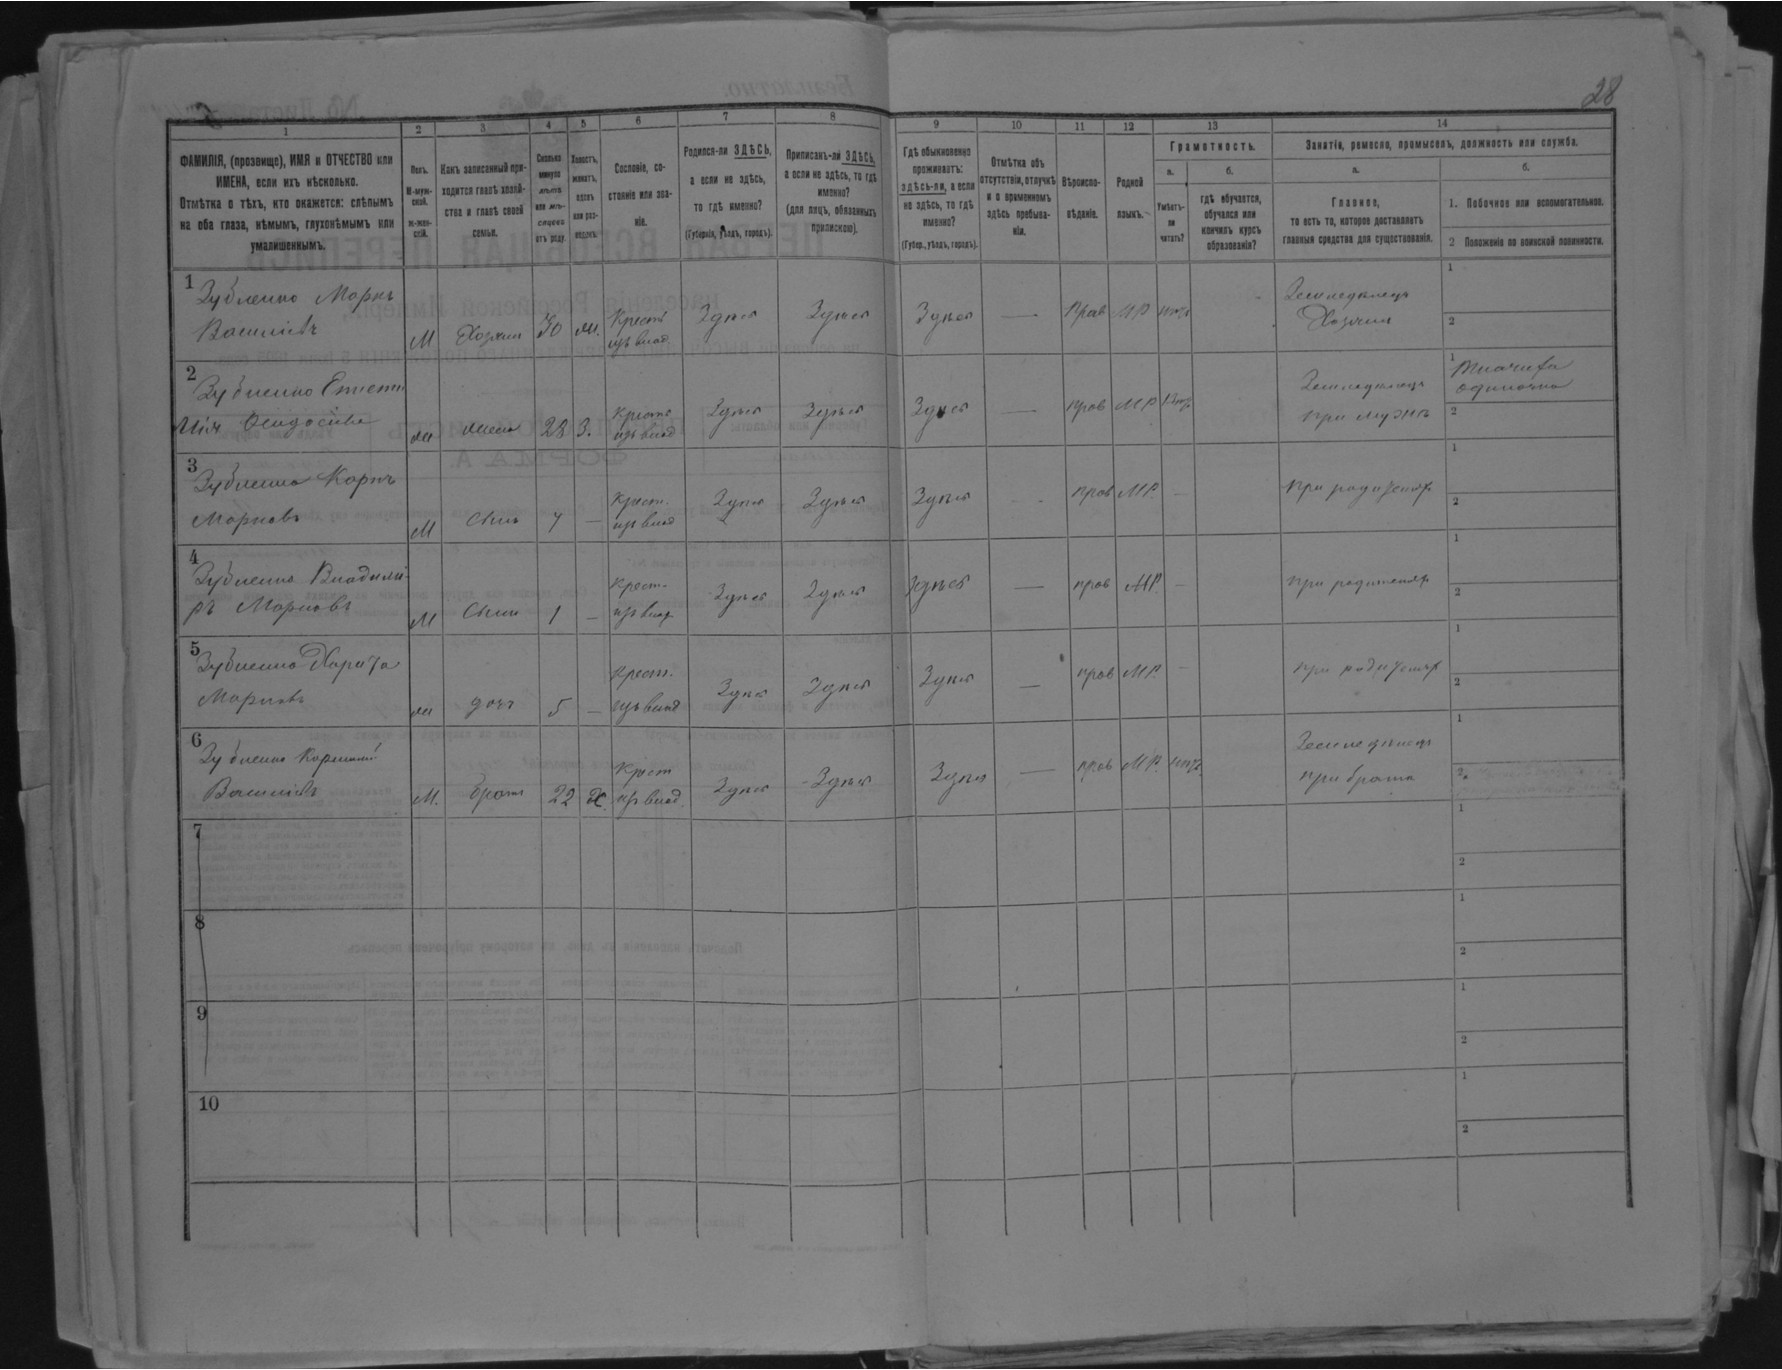 28
1
2
3
4
5
6
7
8
9
10
11
12
13
14
ФАМИЛІЯ, (прозвище), ИМЯ и ОТЧЕСТВО или
ИМЕНА, если ихъ нѣсколько.
Отмѣтка о тѣхъ, кто окажется: слѣпымъ
на оба глаза, нѣмымъ, глухонѣмымъ или
умалишеннымъ.
Полъ.
М-муж-
ской.
ж-жен-
скій.
Какъ записанный при-
ходится главѣ хозяй-
ства и главѣ своей
семьи.
Сколько
минуло
лѣтъ
или мѣ-
сяцевъ
отъ роду.
Холостъ,
женатъ,
вдовъ
или раз-
веденъ.
Сословіе, со-
стояніе или зва-
ніе.
Родился-ли ЗДѢСЬ,
а если не здѣсь,
то гдѣ именно?
(Губернія, уѣздъ, городъ).
Приписанъ-ли ЗДѢСЬ,
а если не здѣсь, то гдѣ
именно?
(для лицъ, обязанныхъ
припискою).
Гдѣ обыкновенно
проживаетъ:
здѣсь-ли, а если
не здѣсь, то гдѣ
именно?
(Губер., уѣздъ, городъ).
Отмѣтка объ
отсутствіи, отлучкѣ
и о временномъ
здѣсь пребыва-
ніи.
Вѣроиспо-
вѣданіе.
Родной
языкъ.
Грамотность.
а.
Умѣетъ-
ли
читать?
б.
гдѣ обучается,
обучался или
кончилъ курсъ
образованія?
Занятіе, ремесло, промыселъ, должность или служба.
а.
Главное,
то есть то, которое доставляетъ
главныя средства для существованія.
б.
1. Побочное или вспомогательное.
2 Положеніе по воинской повинности.
1
Зубленко Маркъ
Васильевъ
М
Хозяин
30
ж.
Крест
изъ влад.
Здѣсь
Здѣсь
Здѣсь
—
Прав
МР
нѣтъ
Земледѣлецъ
Хозяин
1
2
2
Зубленко
Феодосіева
ж
жена
28
З.
Крест
изъ влад
Здѣсь
Здѣсь
Здѣсь
—
прав
МР
нѣтъ
Земледѣлецъ
при мужѣ
1
2
3
Зубленко Карпъ
Марковъ
М
Сынъ
7
—
Крест.
изъ влад
Здѣсь
Здѣсь
Здѣсь
—
прав
МР.
—
при родител
1
2
4
Зубленко Владими-
ръ Марковъ
М
Сынъ
1
—
Крест.
изъ влад
Здѣсь
Здѣсь
Здѣсь
—
прав
МР.
—
при родител
1
2
5
Зубленко
Марков
ж
дочь
5
—
Крест.
изъ влад
Здѣсь
Здѣсь
Здѣсь
—
прав
МР.
—
при родител
1
2
6
Зубленко Корнилій
Васильевъ
М.
братъ
22
Х.
Крест
изъ влад.
Здѣсь
Здѣсь
Здѣсь
—
прав
МР.
нѣтъ
Земледѣлецъ
при братѣ
1
2
7
1
2
8
1
2
9
1
2
10
1
2